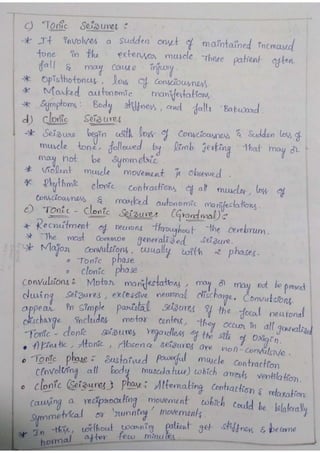 c) Tonic Seizures :
* It involves a sudden onset of maintained increased
tone in the extensor muscle. These patient often
fall & may cause injury.
* Opisthotonus, loss of consciousness
* Marked autonomic manifestations
* Symptoms: Body stiffness, and falls Backward
d) Clonic Seizures
* Seizure begin with loss of consciousness & sudden loss of
muscle tone, followed by limb jerking that may or
may not be symmetric
* violent muscle movement is observed.
* Rhythmic clonic contractions of all muscles, loss of
consciousness & marked autonomic manifestations.
e) Tonic - Clonic Seizures (Grandmal) :
* Recruitment of neurons throughout the cerebrum.
* The most common generalised seizure.
* Major convulsions, usually with 2 phases.
o Tonic phase
o clonic phase
Convulsions : Motor manifestations, may or may not be present
during seizures, excessive neuronal discharge. Convulsions
appear in Simple partial seizures if the focal neuronal
discharge includes motor centers, they occur in all generalized
Tonic - clonic seizures regardless of the site of origin.
• Akinetic, Atonic, Absence seizures are non-convulsive.
o Tonic phase : Sustained powerful muscle contraction
(involving all body musculature) which arrests ventilation.
o clonic (Seizures) Phase : Alternating contractions & relaxation
causing a reciprocating movement which could be bilaterally
symmetrical or "running" movements.
* In this, without warning patient get stiffness & become
normal after few minutes